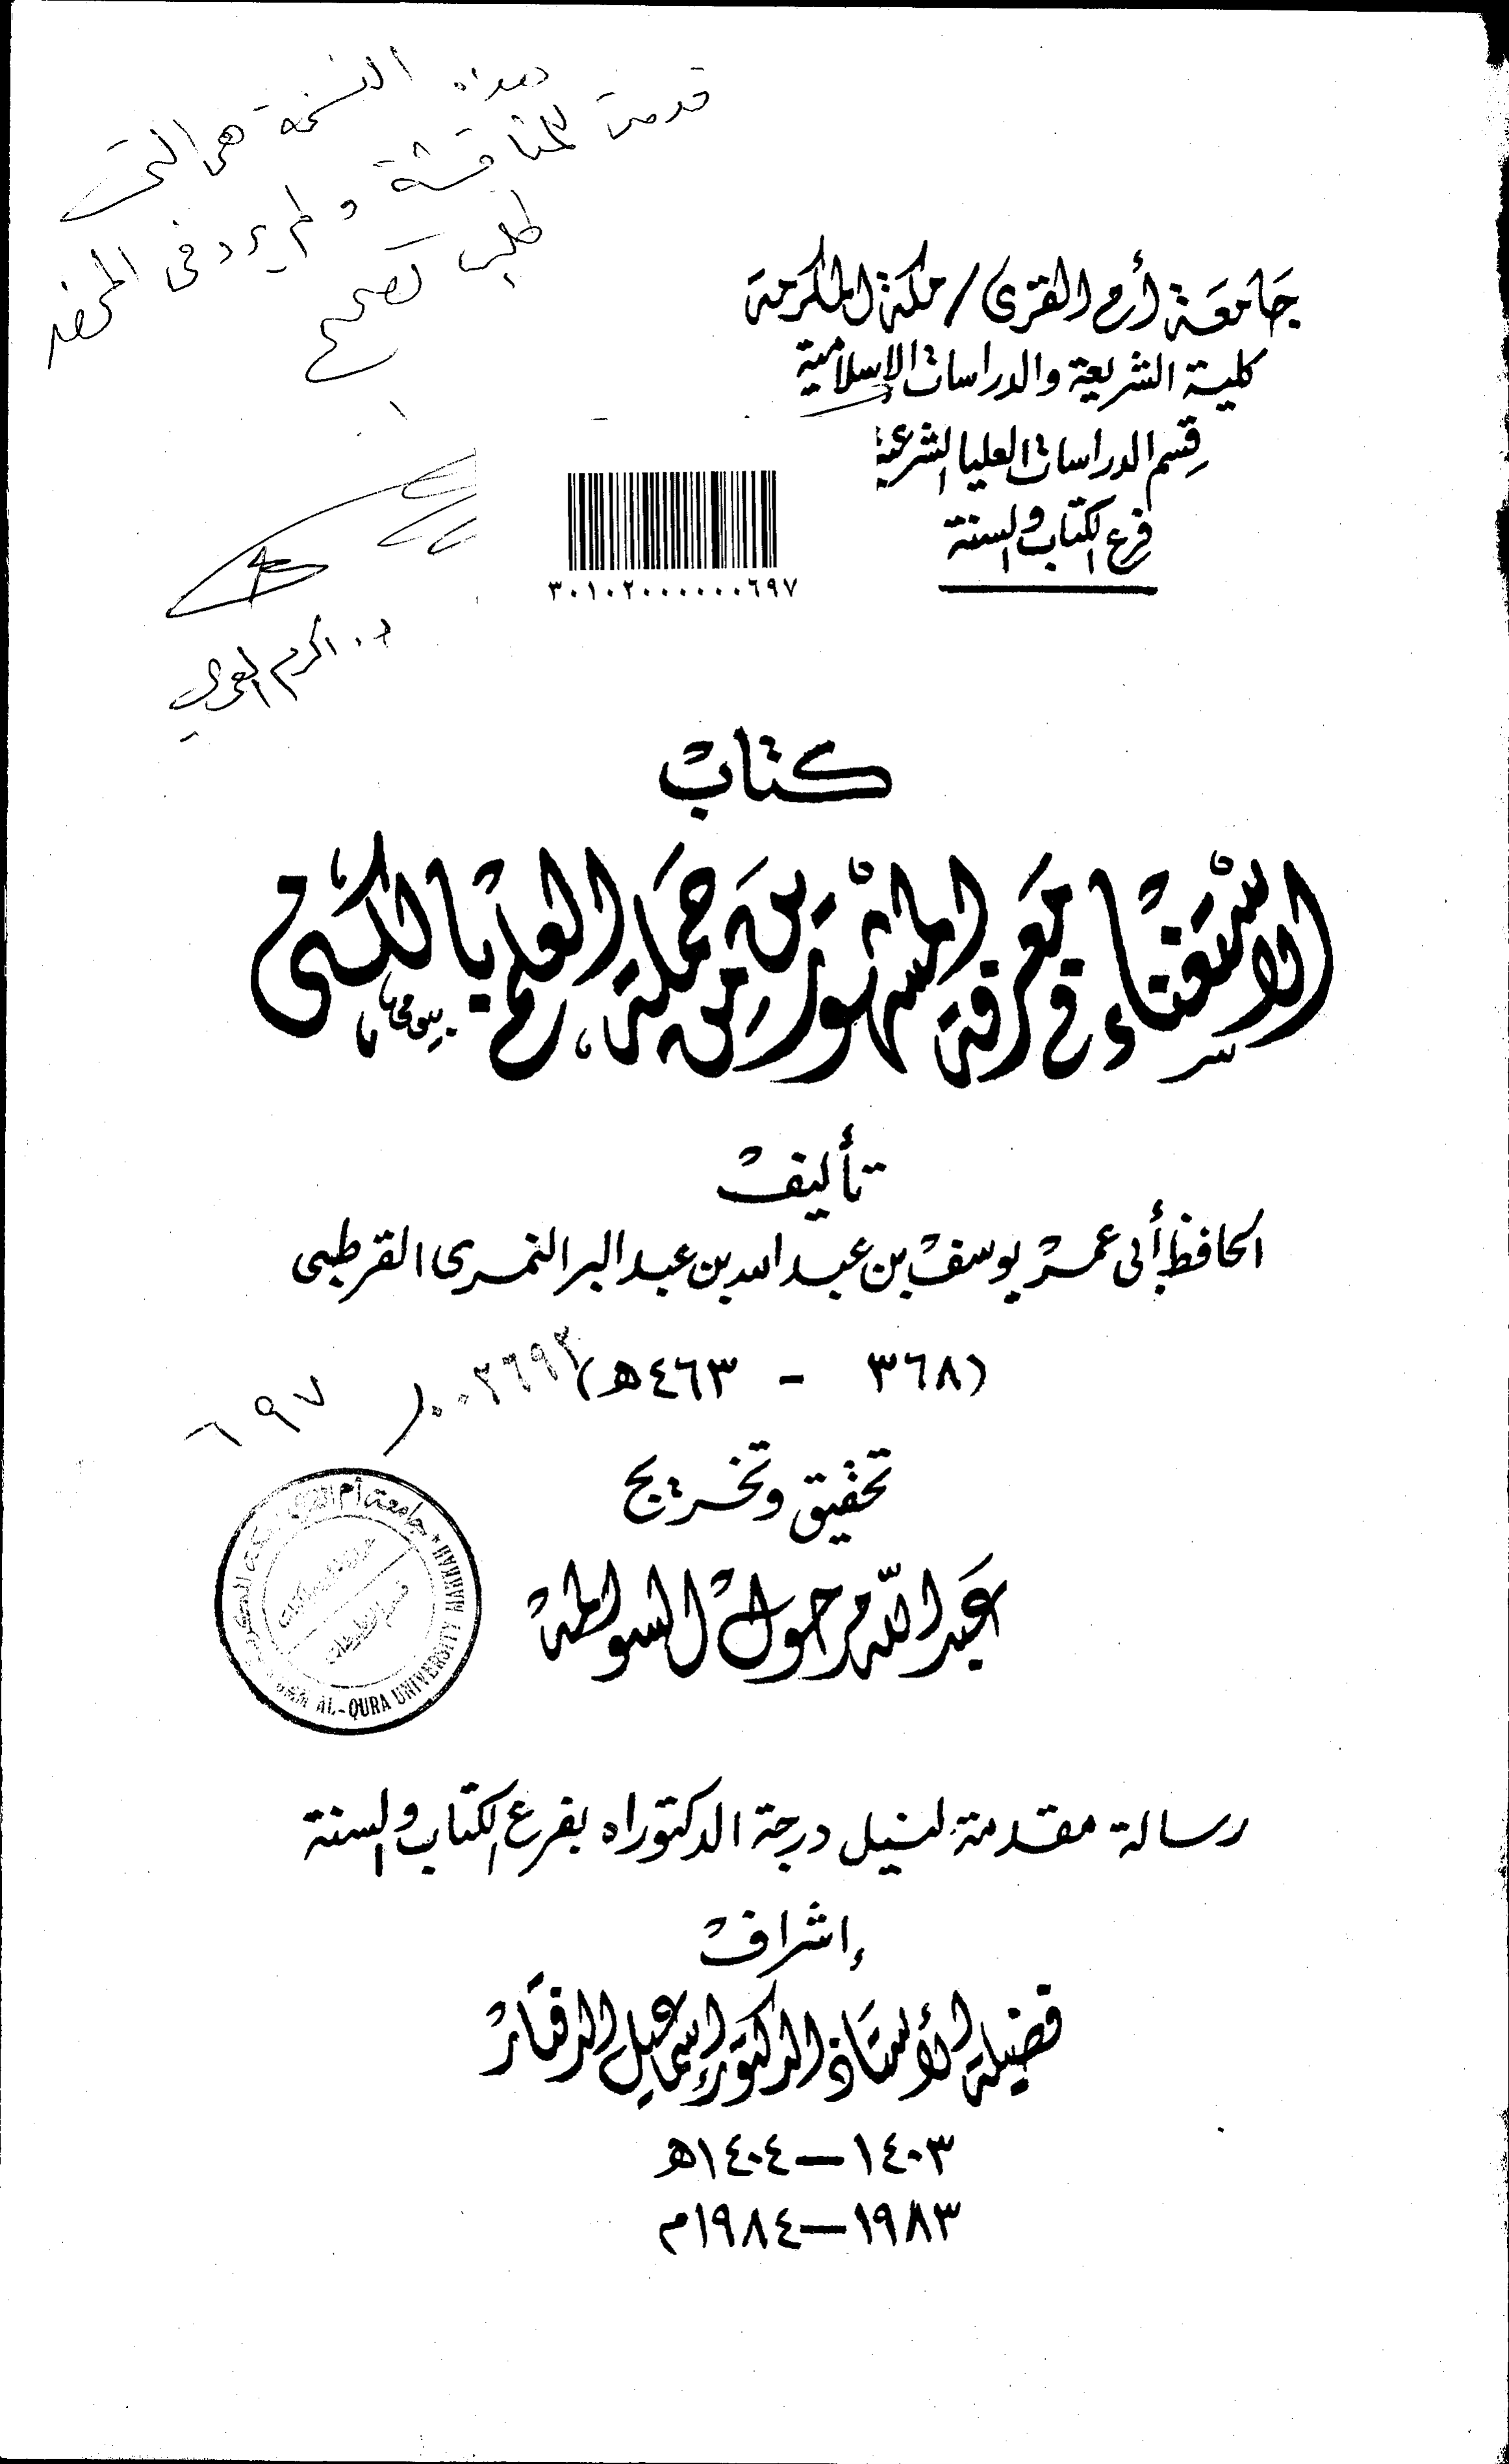 هذه النسخة هي التي
قدمت للمناقشة ولم يرد في المحضر
طلب تصحيح
د. اكرم العمري
جامعة أم القرى / مكة المكرمة
كلية الشريعة والدراسات الإسلامية
قسم الدراسات العليا الشرعية
فرع الكتاب والسنة
٣٠١٠٢٠٠٠٠٠٠٦٩٧
كتاب
الاستغناء في معرفة المشهورين من حملة العلم بالكنى
تأليف
الحافظ أبي عمر يوسف بن عبد الله بن عبد البر النمرى القرطبى
(٣٦٨ - ٤٦٣هـ)
٠٠٢٦٩٢
٦٩٧
تحقيق وتخريج
عبد الله مرحول السوالمة
جامعة أم القرى
UMM AL-QURA UNIVERSITY MAKKAH
رسالة مقدمة لنيل درجة الدكتوراه بفرع الكتاب والسنة
إشراف
فضيلة الأستاذ الدكتور إسماعيل الدفتار
١٤٠٣ — ١٤٠٤هـ
١٩٨٣ — ١٩٨٤م